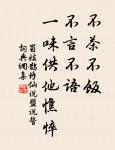 不茶不飯
不言不語
一味供他憔悴
蜀妓鵲橋仙說盟說誓
詞典網集